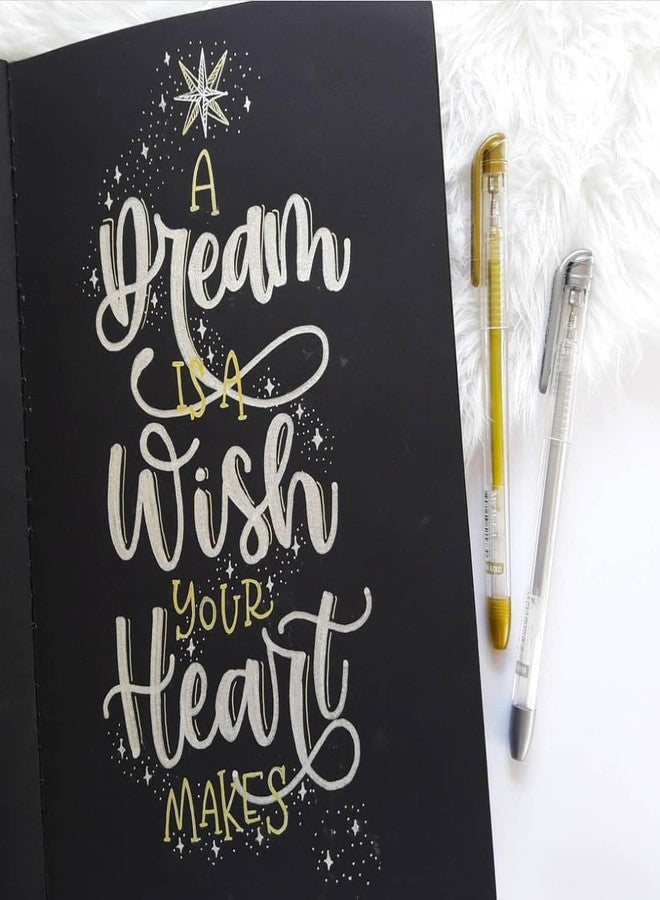 A
Dream
IS A
Wish
YOUR
Heart
MAKES